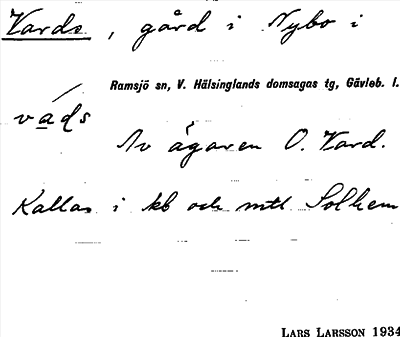 Vards, gård i Nybo i
Ramsjö sn, V. Hälsinglands domsagas tg, Gävleb. l.
va̲ds
Av ägaren O. Vard.
Kallas i kb och mtl Solhem
LARS LARSSON 1934